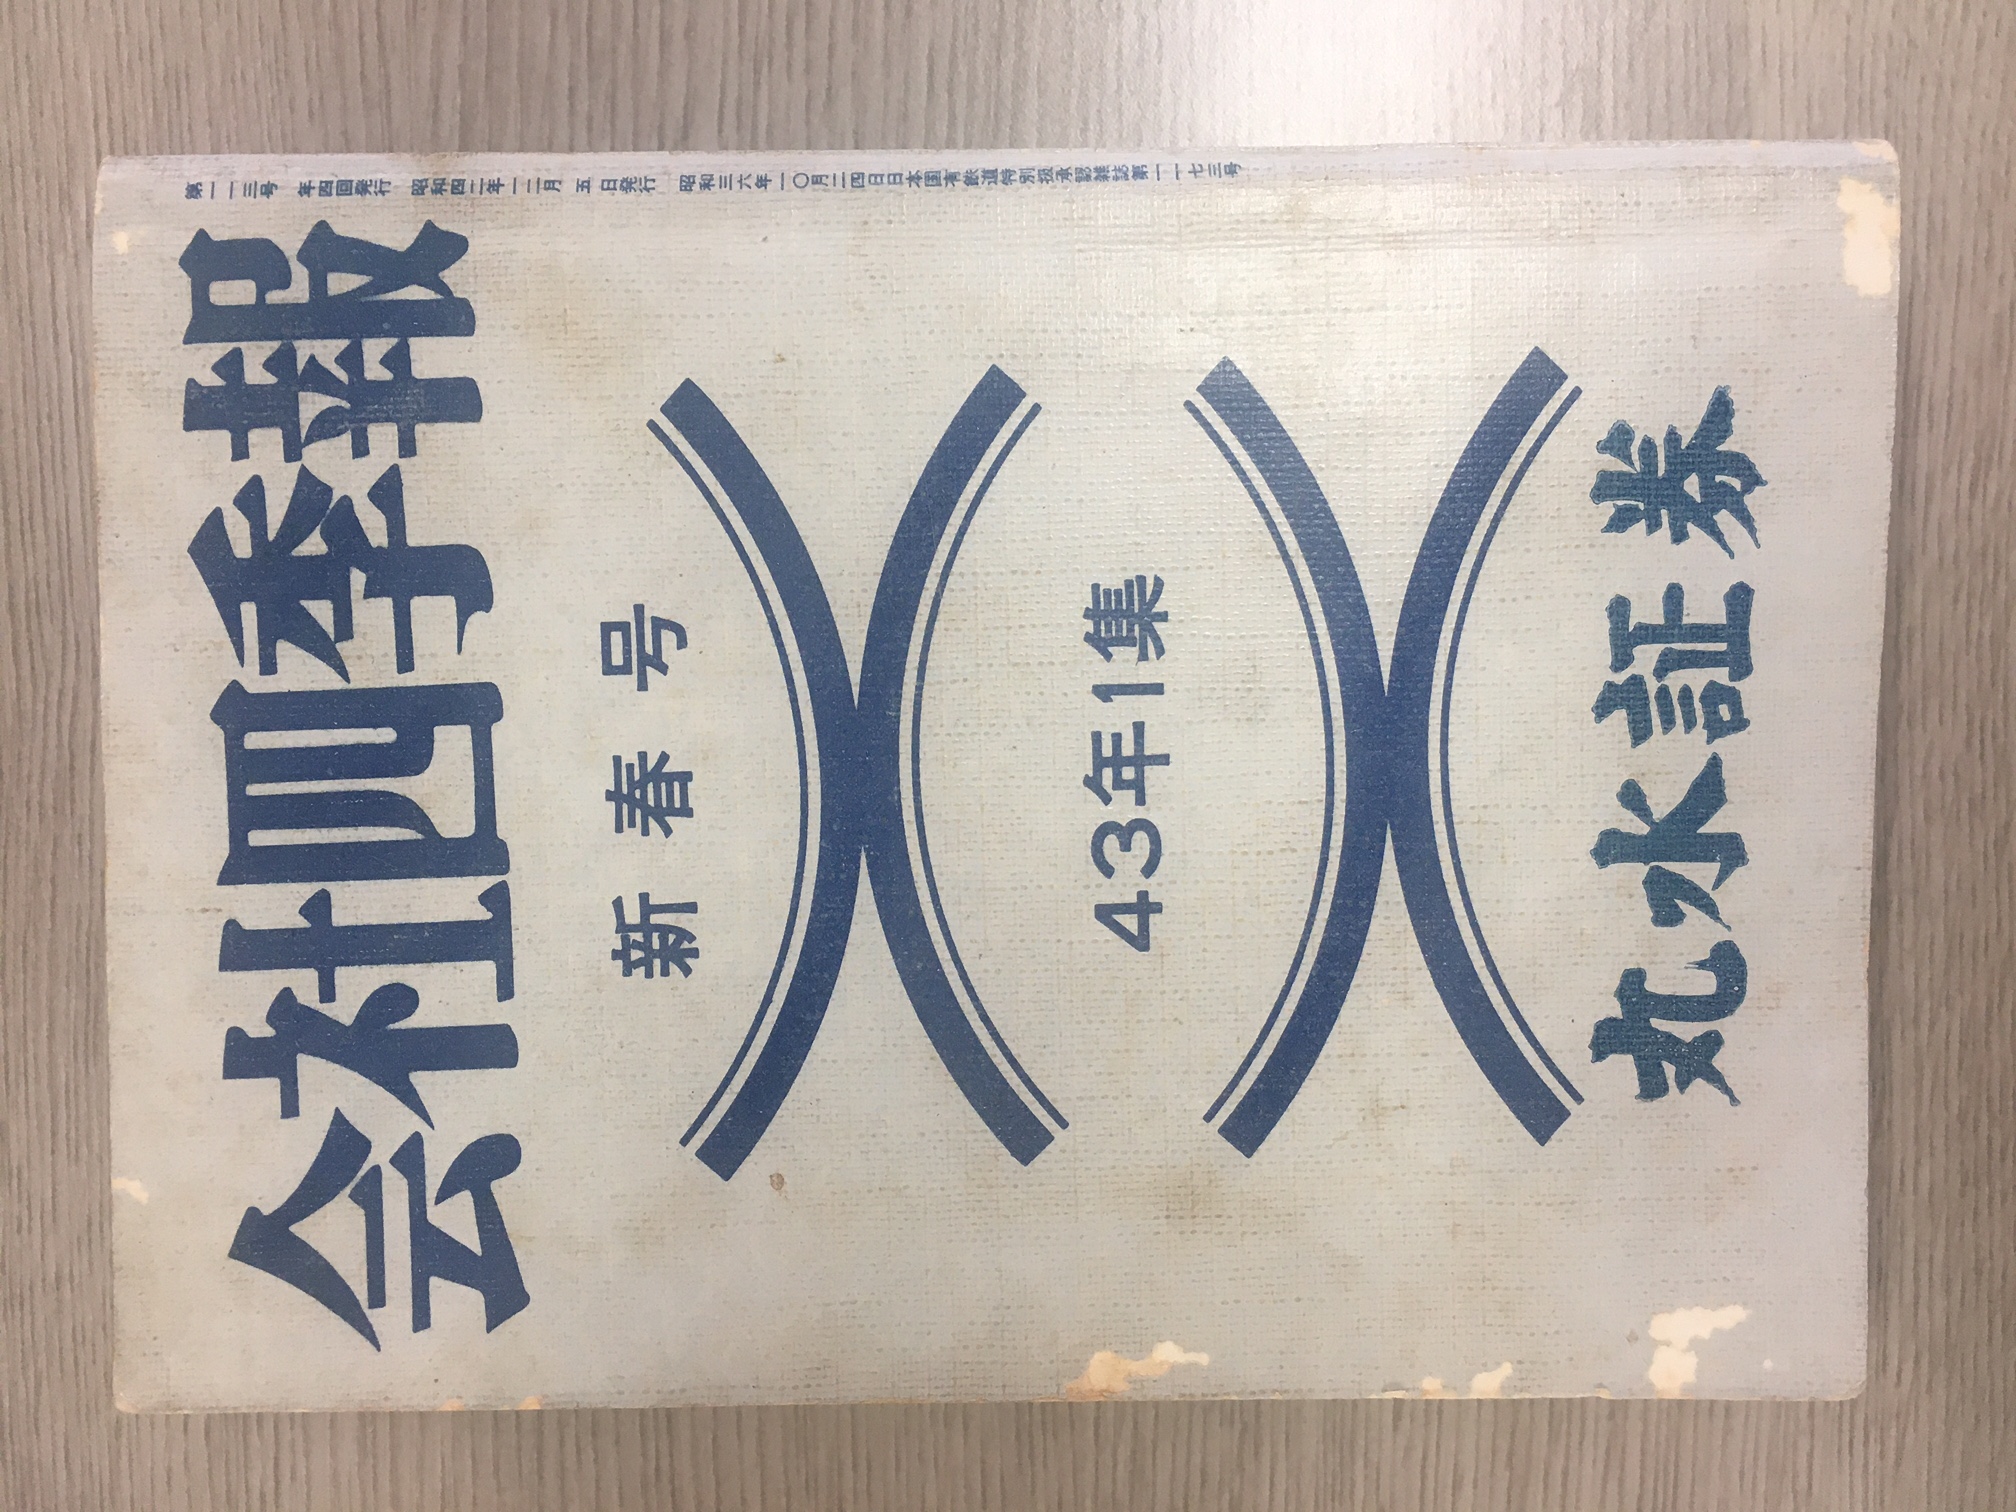 第一一三号　年四回発行　昭和四二年一二月五日発行　昭和三六年一〇月二四日日本国有鉄道特別扱承認雑誌第一一七三号
会社四季報
新春号
43年1集
丸水証券